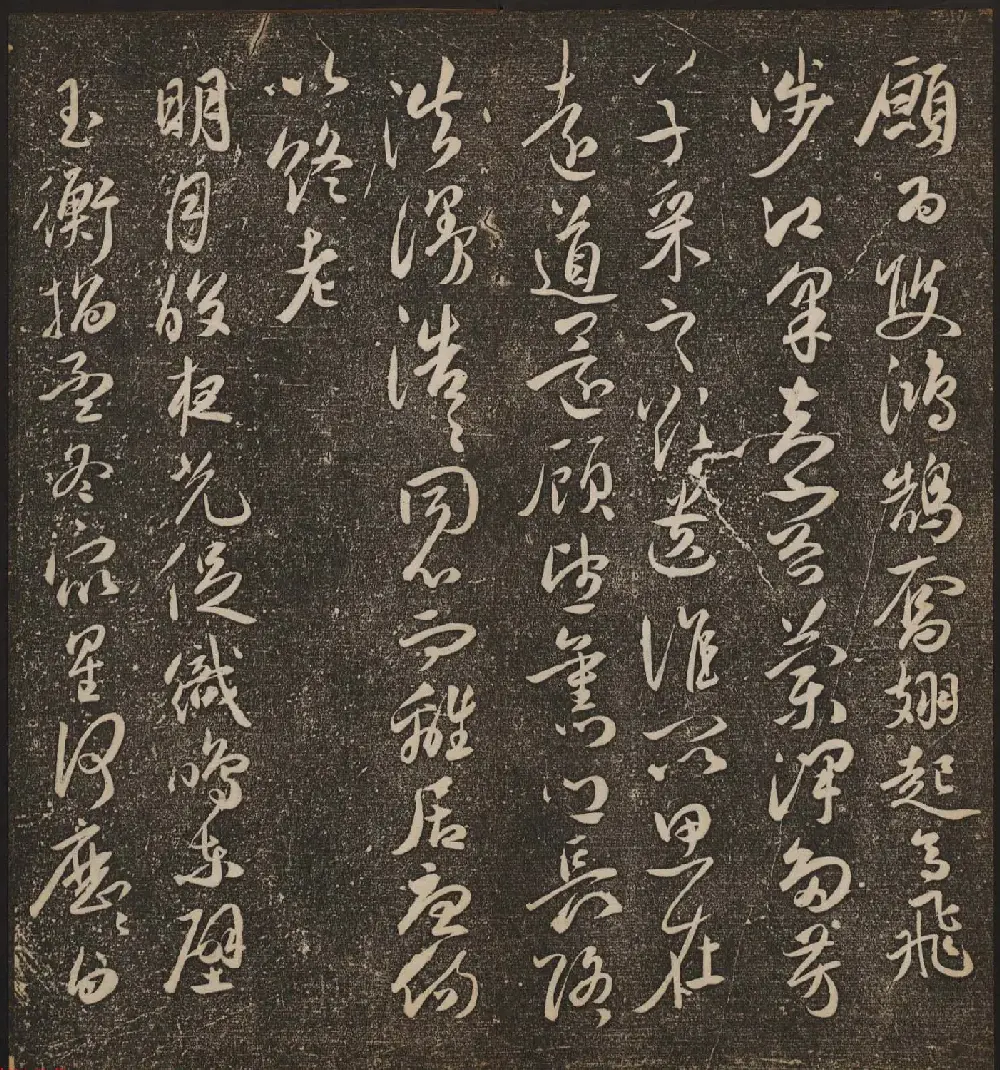 願為雙鴻鵠奮翅起高飛
涉江采芙蓉蘭澤多芳
草采之欲遺誰所思在
遠道還顧望舊鄉長路
浩漫浩々同心而離居憂傷
以終老
明月皎夜光促織鳴東壁
玉衡指孟冬衆星何歷々白